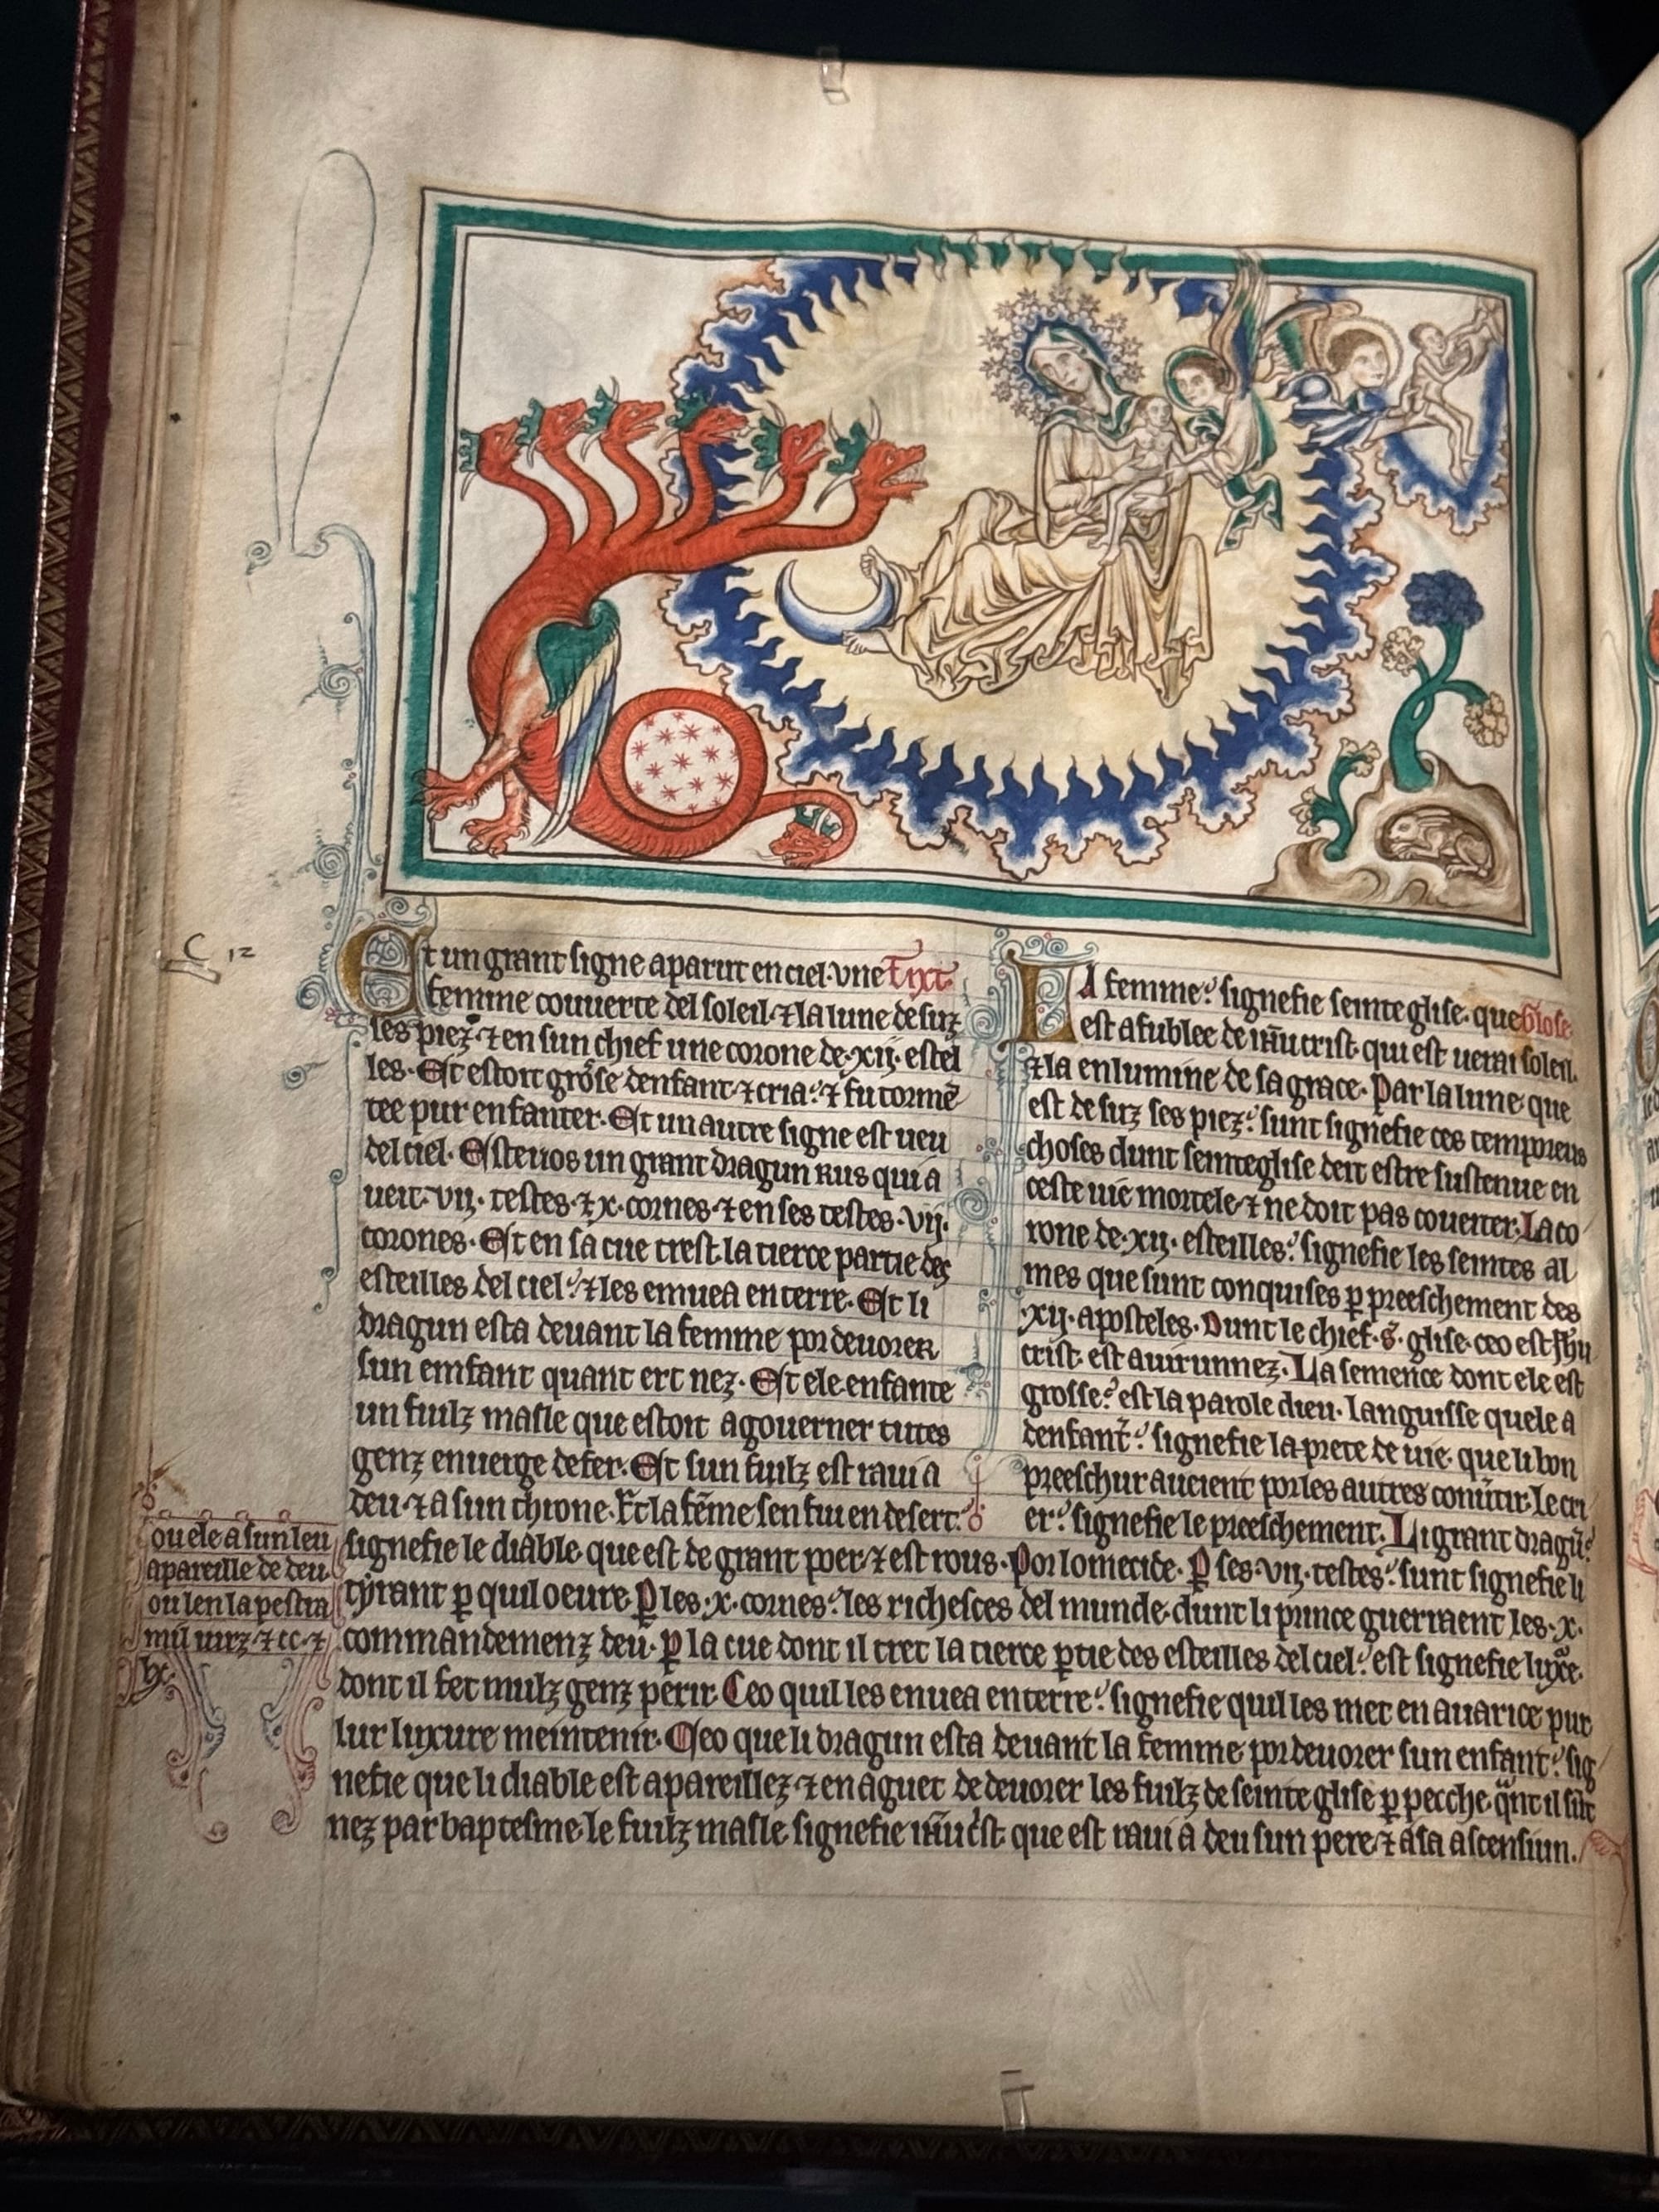 C 12
Et un grant signe aparut en ciel · vne Tixt
femme couuerte del soleil · ⁊ la lune desuz
ses piez · ⁊ en sun chief une corone de · xij · estel
les · Et estoit grosse denfant · ⁊ cria · ⁊ fu tormē
tee pur enfanter · Et un autre signe est ueu
del ciel · Esteuos un grant dragun rus qui a
ueit · vij · testes · ⁊ x · cornes · ⁊ en ses testes · vij ·
corones · Et en sa cue trest la tierce partie des
esteilles del ciel · ⁊ les enuea en terre · Et li
dragun esta deuant la femme por deuorer
sun emfant quant ert nez · Et ele enfante
un fuilz masle que estoit a gouerner tutes
genz en uerge de fer · Et sun fuilz est raui a
deu · ⁊ a sun throne · Et la fēme sen fui en desert ·
ou ele a sun leu
apareille de deu ·
ou len la pestra
mil iurz · ⁊ cc · ⁊
lx ·
La femme · signefie seinte glise · que Glose
est afublee de iħu crist · qui est uerai soleil ·
⁊ la enlumine de sa grace · Par la lune que
est desuz ses piez · sunt signefie ces temporeus
choses dunt seinte glise deit estre sustenue en
ceste uie mortele · ⁊ ne doit pas coueiter · La co
rone de · xij · esteilles · signefie les seintes al
mes que sunt conquises p preeschement des
· xij · aposteles · Dunt le chief · s̄ · glise · ceo est ihu
crist · est auirunnez · La semence dont ele est
grosse · est la parole dieu · Languisse quele a
denfant̄ · signefie la prete de uie · que li bon
preeschur aueient por les autres conūtir · Le cri
er · signefie le preeschement · Li grant dragū ·
signefie le diable que est de grant poer · ⁊ est rous · Por lomecide · P ses · vij · testes · sunt signefie li
tyrant p qui loeure · P les · x · cornes · les richesces del munde · dunt li prince guerraient les · x ·
commandemenz deu · P la cue dont il tret la tierce ptie des esteilles del ciel · est signefie luxe ·
dont il fet mulz genz perir · Ceo quil les enuea en terre · signefie quil les met en auarice pur
lur luxure meintenir · Ceo que li dragun esta deuant la femme por deuorer sun enfant · sig
nefie que li diable est apareillez · ⁊ en aguet de deuorer les fuilz de seinte glise p pecche qnt il sūt
nez par baptesme · le fuilz masle signefie iħu c̄st · que est raui a deu sun pere · ⁊ a sa ascensiun ·